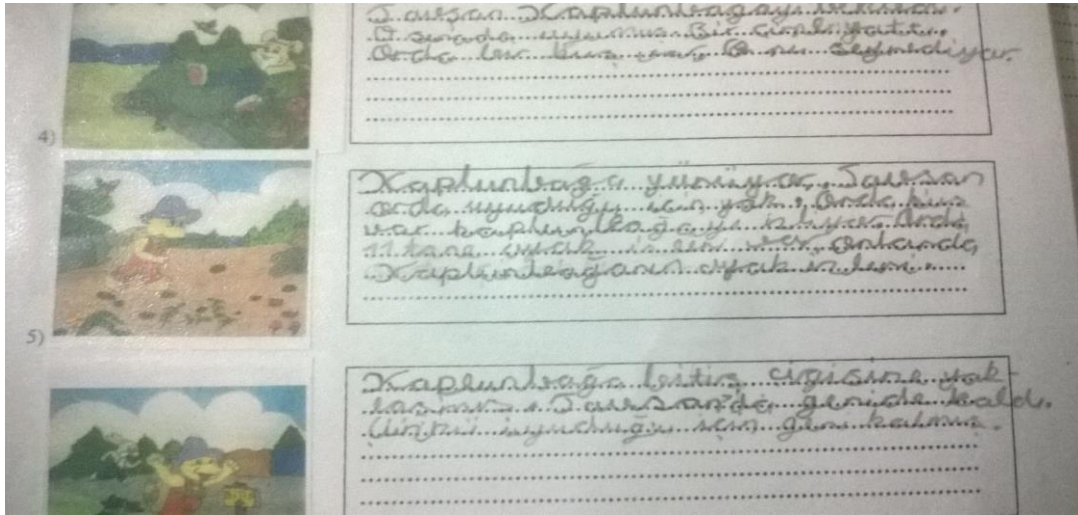 Tavşan Kaplunbağayı
O sırada uyumuş. Bir yattı.
Orda bir kuş var. O nu seyrediyor.
4)
Kaplunbağa yürüyor. Tavşan
orda uyuduğu için yok. Orda kuş
var kaplunbağayı izliyor. Orda,
11 tane ayak izleri var onlarda,
Kaplunbağanın ayak izleri.
5)
Kaplunbağa bitiş çigisine yak-
laşmış. Tavşan'da geride kaldı.
Çünkü uyuduğu için geri kalmış.